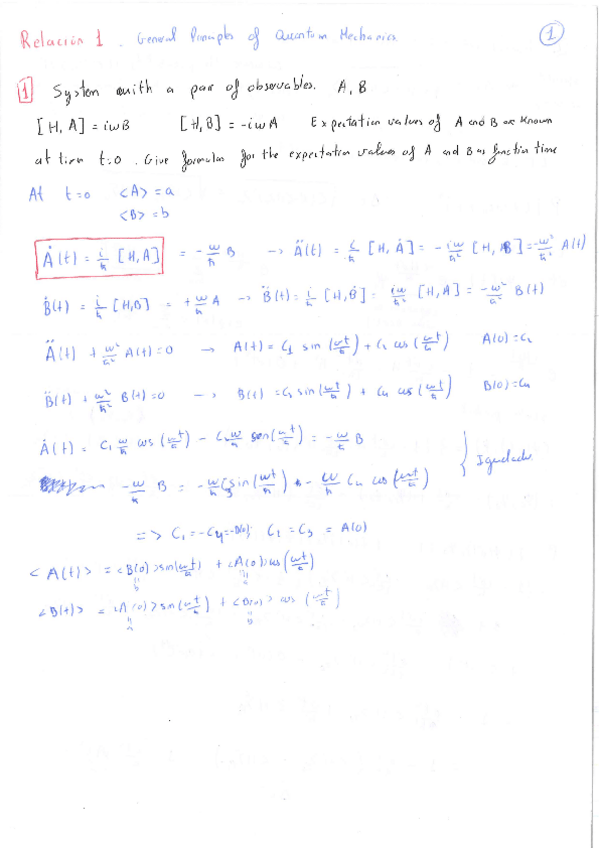 Relación 1. General Principles of Quantum Mechanics. 1
1 System with a pair of observables. A, B
[H, A] = iωB [H, B] = -iωA Expectation values of A and B are known
at time t=0. Give formulas for the expectation values of A and B as function time
At t=0 <A> = a
<B> = b
Ȧ(t) = i/ħ [H, A] = -ω/ħ B -> Ä(t) = i/ħ [H, Ȧ] = -iω/ħ² [H, B] = -ω²/ħ² A(t)
Ḃ(t) = i/ħ [H, B] = +ω/ħ A -> B̈(t) = i/ħ [H, Ḃ] = iω/ħ² [H, A] = -ω²/ħ² B(t)
Ä(t) + ω²/ħ² A(t) = 0 -> A(t) = C₁ sin (ωt/ħ) + C₂ cos (ωt/ħ) A(0) = C₂
B̈(t) + ω²/ħ² B(t) = 0 -> B(t) = C₃ sin (ωt/ħ) + C₄ cos (ωt/ħ) B(0) = C₄
Ȧ(t) = C₁ ω/ħ cos (ωt/ħ) - C₂ ω/ħ sen (ωt/ħ) = -ω/ħ B
-ω/ħ B = -ω/ħ C₃ sin (ωt/ħ) - ω/ħ C₄ cos (ωt/ħ) } Igualando
=> C₁ = -C₄ = -B(0); C₂ = C₃ = A(0)
<A(t)> = <B(0)> sin (ωt/ħ) + <A(0)> cos (ωt/ħ)
b a
<B(t)> = <A(0)> sin (ωt/ħ) + <B(0)> cos (ωt/ħ)
a b